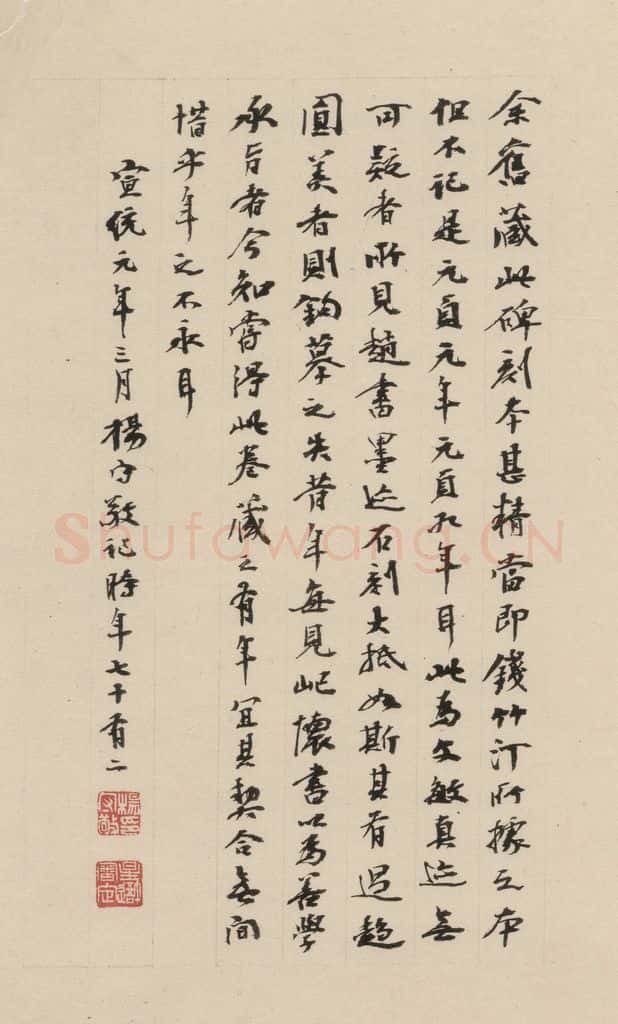 余舊藏此碑刻本甚精當即錢竹汀所據之本
但不記是元貞元年元貞九年耳此為文敏真迹無
可疑者所見趙書墨迹石刻大抵如斯其有過趋
圓美者則鈎摹之失昔年每見屺懷書以為善學
承旨者今知嘗得此卷藏之有年宜其契合無間
惜乎年之不永耳
宣統元年三月楊守敬記時年七十有二
楊守敬印
星吾審定
Shufawang.CN